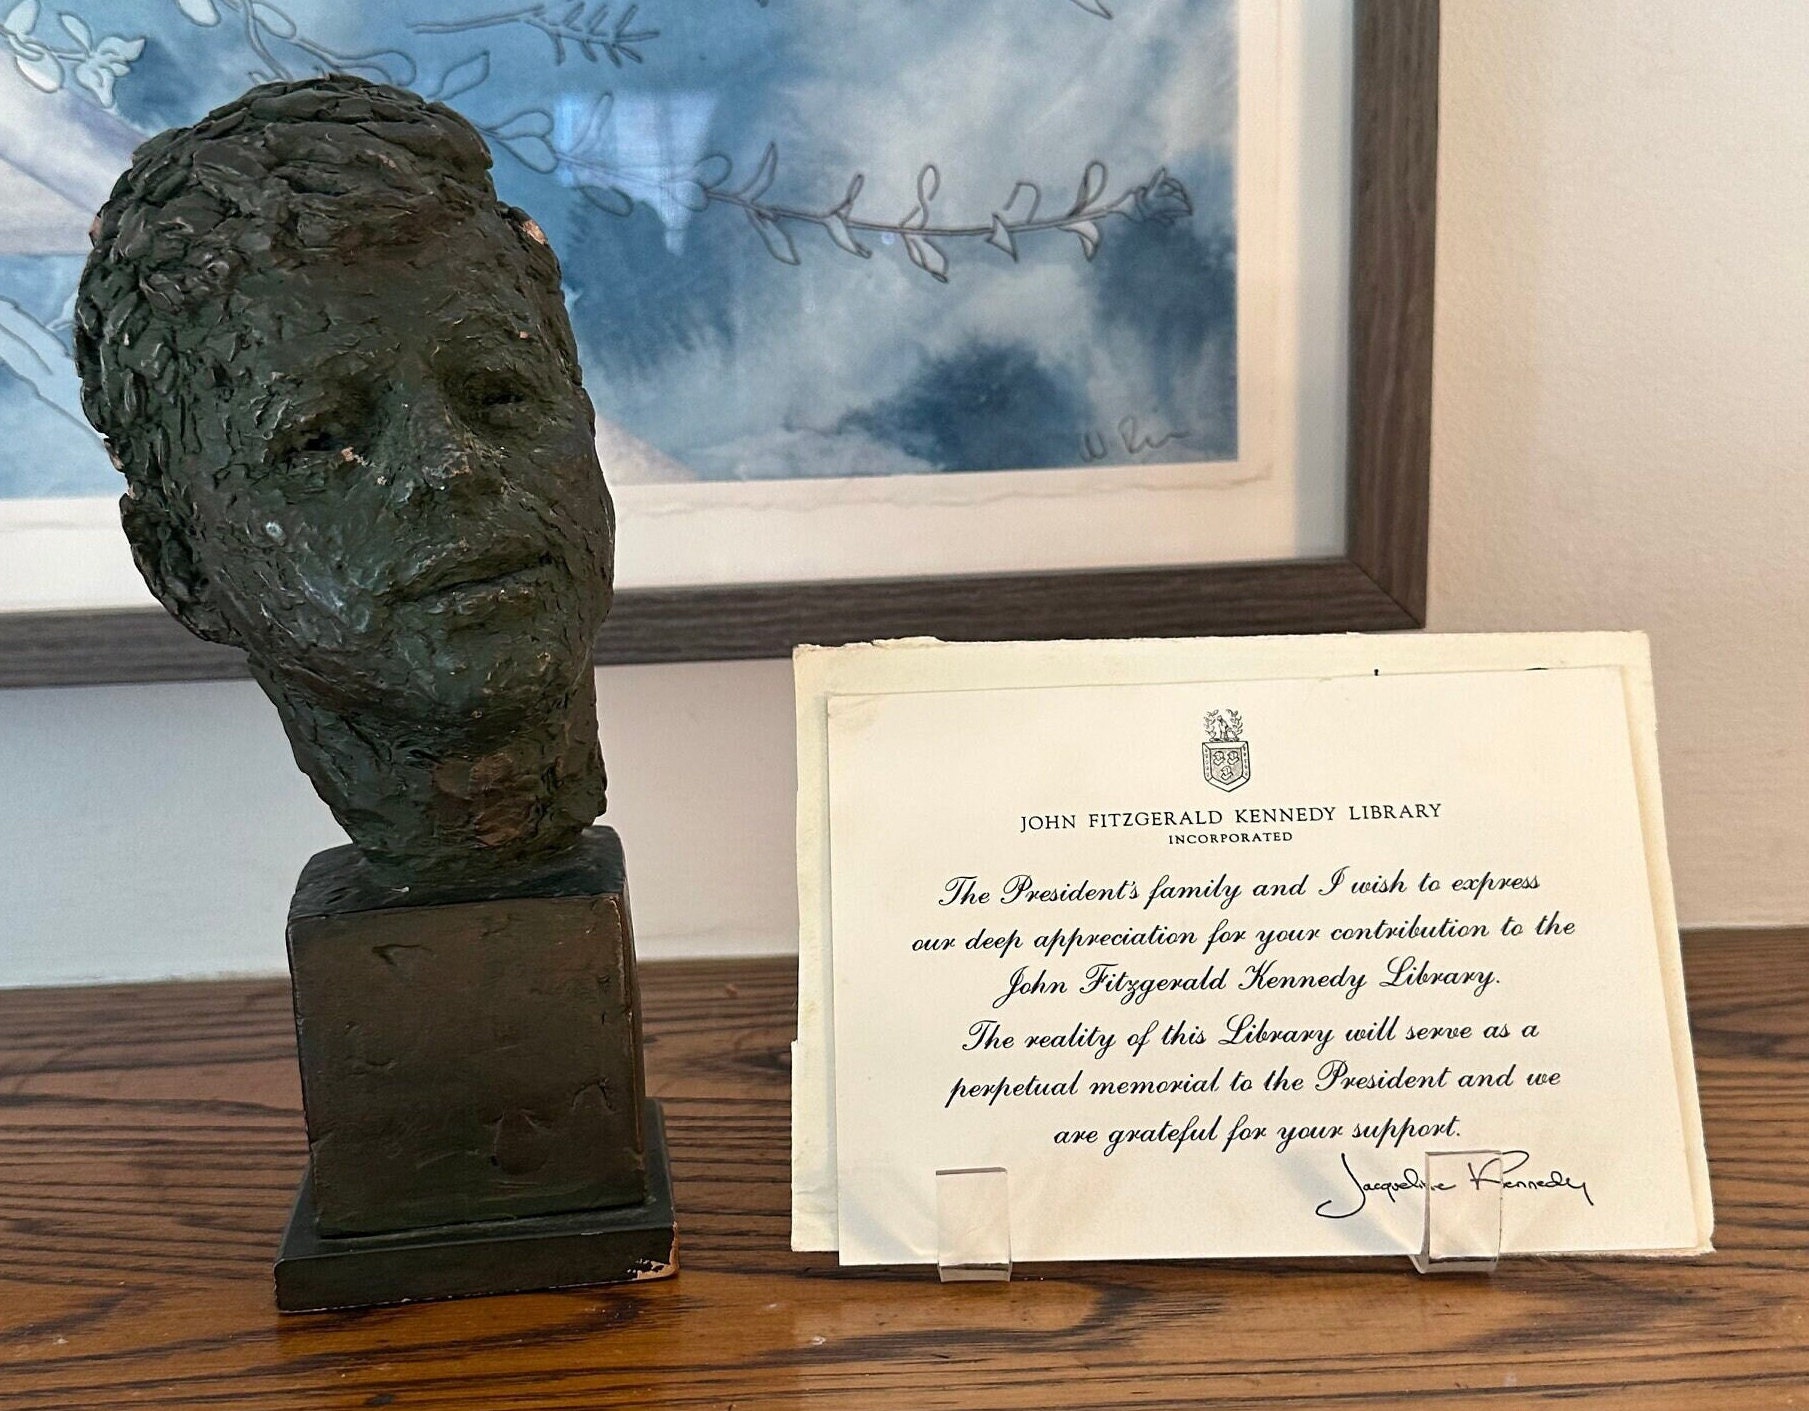 JOHN FITZGERALD KENNEDY LIBRARY
INCORPORATED
The President's family and I wish to express
our deep appreciation for your contribution to the
John Fitzgerald Kennedy Library.
The reality of this Library will serve as a
perpetual memorial to the President and we
are grateful for your support.
Jacqueline Kennedy